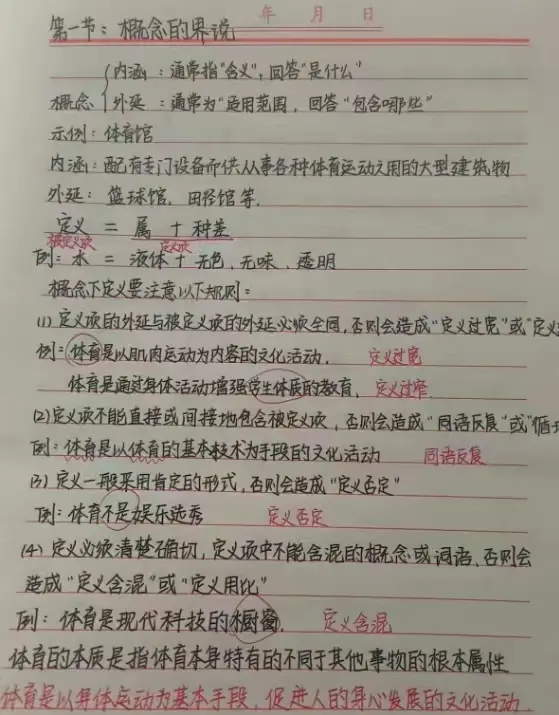 年 月 日
第一节：概念的界说
内涵：通常指"含义"，回答"是什么"
概念
外延：通常为"适用范围，回答"包含哪些"
示例：体育馆
内涵：配有专门设备而供从事各种体育运动之用的大型建筑物
外延：篮球馆、田径馆等.
定义 = 属 + 种差
被定义项 定义项
例：水 = 液体 + 无色、无味、透明
概念下定义要注意以下规则：
(1) 定义项的外延与被定义项的外延必须全同，否则会造成"定义过宽"或"定义
例：体育是以肌肉运动为内容的文化活动. 定义过宽
体育是通过身体活动增强学生体质的教育. 定义过窄
(2) 定义项不能直接或间接地包含被定义项，否则会造成"同语反复"或"循环
例：体育是以体育的基本技术为手段的文化活动 同语反复
(3) 定义一般采用肯定的形式，否则会造成"定义否定"
例：体育不是娱乐选秀 定义否定
(4) 定义必须清楚确切，定义项中不能含混的概念或词语，否则会
造成"定义含混"或"定义用比"
例：体育是现代科技的橱窗. 定义含混
体育的本质是指体育本身特有的不同于其他事物的根本属性
体育是以身体运动为基本手段，促进人的身心发展的文化活动.